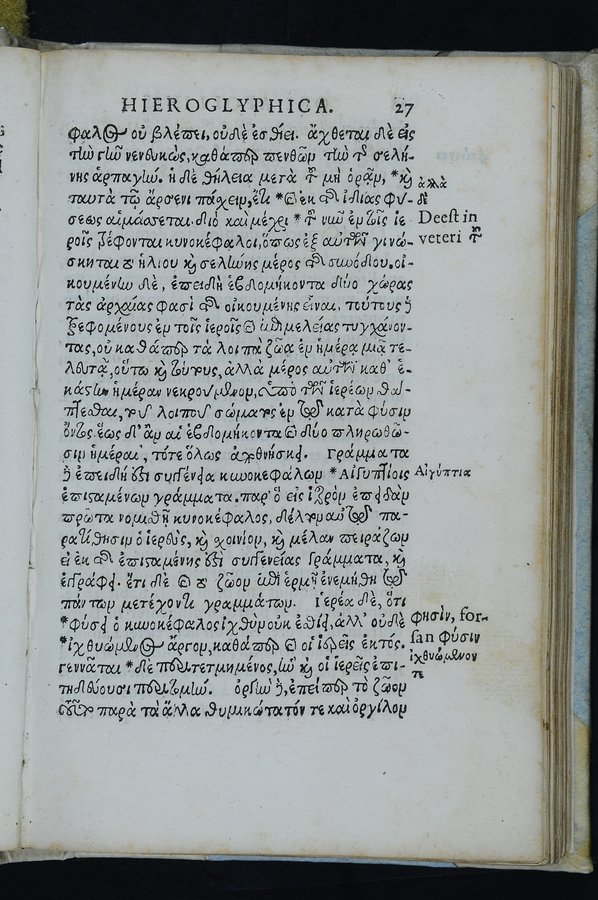 HIEROGLYPHICA. 27
φαλος οὐ βλέπει, οὐδὲ ἐσθίει. ἄχθεται δὲ εἰς
τὴν γῆν νενευκὼς, καθάπερ πενθῶν τὴν τῆς σελή-
νης ἁρπαγήν. ἡ δὲ θήλεια μετὰ τοῦ μὴ ὁρᾶν, *καὶ
ταυτὰ τῷ ἄρσενι πάχειν, ἔτι *ὁ ἐκ τῆς ἰδίας φύ-
σεως αἱμάσσεται. διὸ καὶ μέχρι *τοῦ νῦν ἐν τοῖς ἱε
ροῖς τρέφονται κυνοκέφαλοι, ὅπως ἐξ αὐτῶν γινώ-
σκηται τὸ ἡλίου καὶ σελήνης μέρος τῆς συνόδου. οἰ-
κουμένην δὲ, ἐπειδὴ ἑβδομήκοντα δύο χώρας
τὰς ἀρχαίας φασὶ τῆς οἰκουμένης εἶναι. τούτους δὲ
τρεφομένους ἐν τοῖς ἱεροῖς καὶ ἐπιμελείας τυγχάνον-
τας, οὐ καθάπερ τὰ λοιπὰ ζῶα ἐν ἡμέρᾳ μιᾷ τε-
λευτᾷ, οὕτω καὶ τούτους, ἀλλὰ μέρος αὐτῶν καθ' ἑ-
κάστην ἡμέραν νεκρούμενον, ὑπὸ τῶν ἱερέων θάπ-
τεσθαι, τοῦ λοιποῦ σώματος ἐν τῷ κατὰ φύσιν
ὄντος. ἕως δ' ἂν αἱ ἑβδομήκοντα καὶ δύο πληρωθῶ-
σιν ἡμέραι, τότε ὅλως ἀποθνήσκει. Γράμματα
δὲ ἐπειδὴ ἔστι συγγένεια κυνοκεφάλων *Αἰγυπτίοις
ἐπισταμένων γράμματα. παρ' ὃ εἰς ἱερὸν ἐπειδὰν
πρῶτα νομισθῇ κυνοκέφαλος, δέλτον αὐτῷ πα-
ρατίθησιν ὁ ἱερεὺς, καὶ χοινίον, καὶ μέλαν πειράζων
εἰ ἐκ τῆς ἐπισταμένης ἐστὶ συγγενείας γράμματα, καὶ
εἰ γράφει. ἔτι δὲ καὶ τὸ ζῶον ἐπὶ ἑρμῇ ἐνεμήθη τῷ
πάντων μετέχοντι γραμμάτων. Ἱερέα δὲ, ὅτι
*φύσει ὁ κυνοκέφαλος ἰχθῦν οὐκ ἐσθίει, ἀλλ' οὐδὲ
*ἰχθυώμενος ἄρτον, καθάπερ καὶ οἱ ἱερεῖς ἐκτός.
γεννᾶται *δὲ περιτετμημένος, ἣν καὶ οἱ ἱερεῖς ἐπι-
τηδεύουσι περιτομήν. ὀργὴν δὲ, ἐπείπερ τὸ ζῶον
τοῦτο παρὰ τὰ ἄλλα θυμικώτατόν τε καὶ ὀργίλον
ἀλλὰ
δὲ
Deest in
veteri τοῦ
Αἰγύπτια
φησὶν, for-
san φύσιν
ἰχθυώμενον
τε